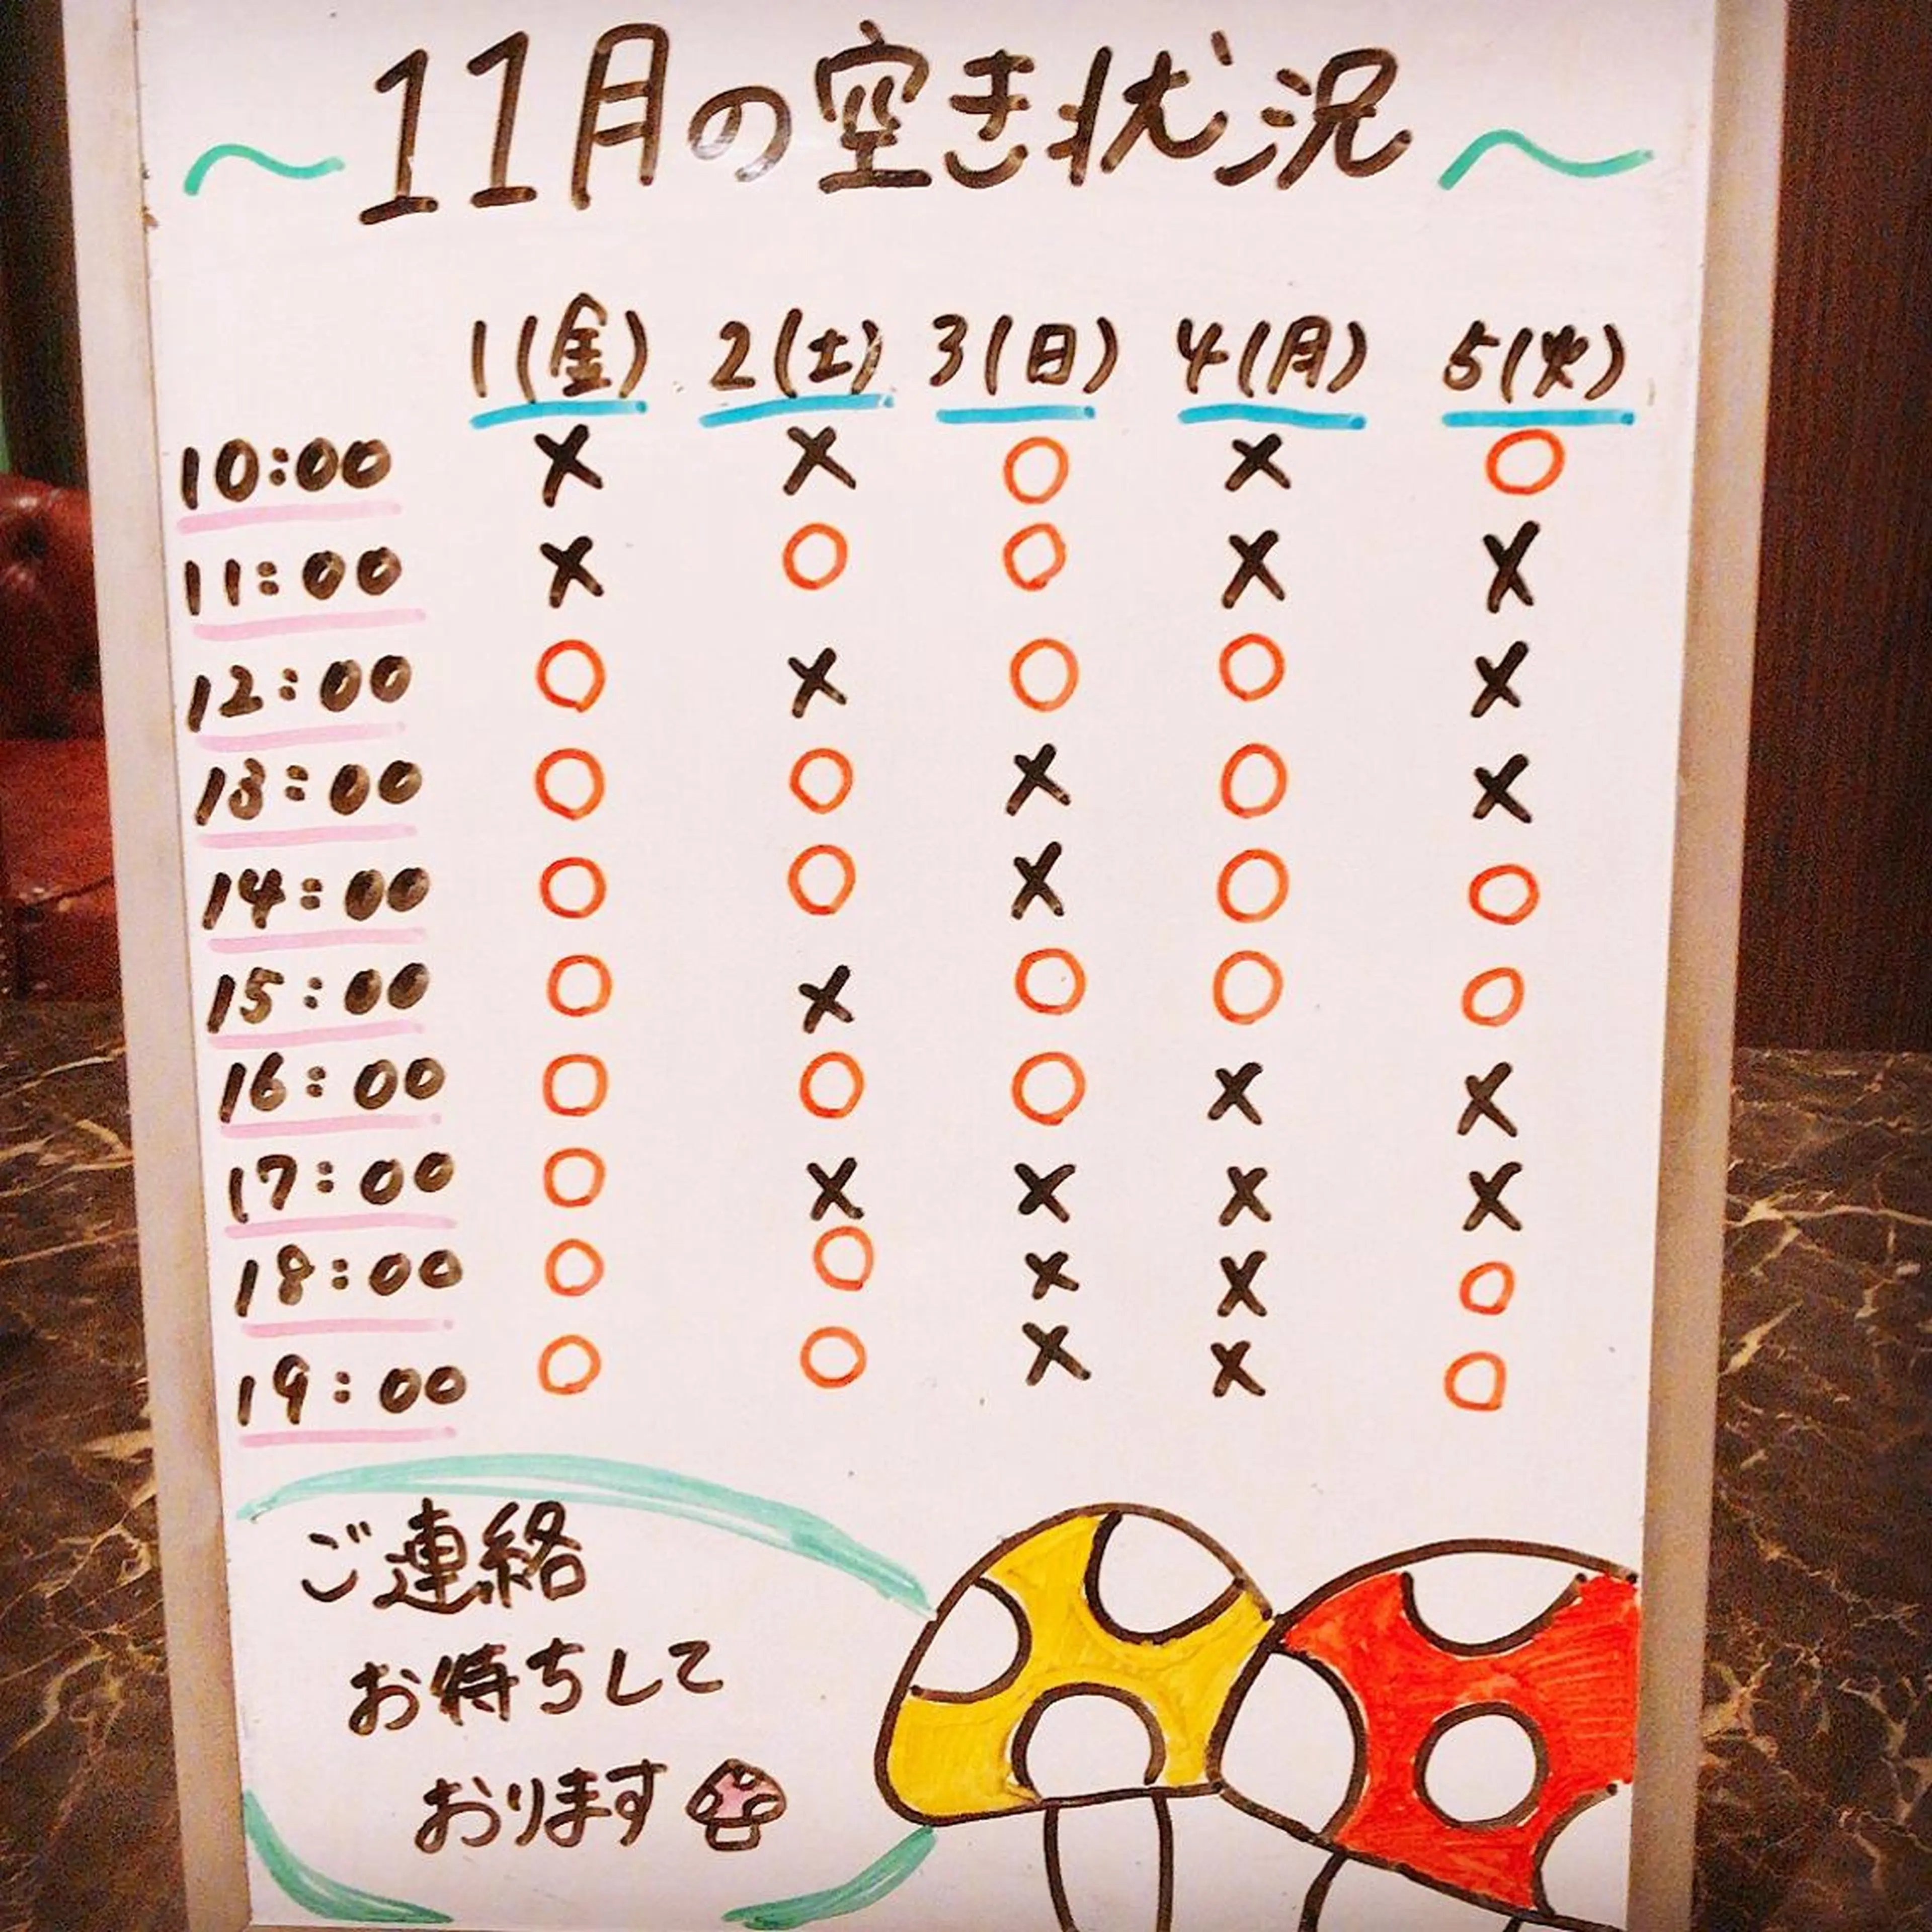 ～11月の空き状況～
1(金) 2(土) 3(日) 4(月) 5(火)
10:00 × × ○ × ○
11:00 × ○ ○ × ×
12:00 ○ × ○ ○ ×
13:00 ○ ○ × ○ ×
14:00 ○ ○ × ○ ○
15:00 ○ × ○ ○ ○
16:00 ○ ○ ○ × ×
17:00 ○ × × × ×
18:00 ○ ○ × × ○
19:00 ○ ○ × × ○
ご連絡
お待ちして
おります